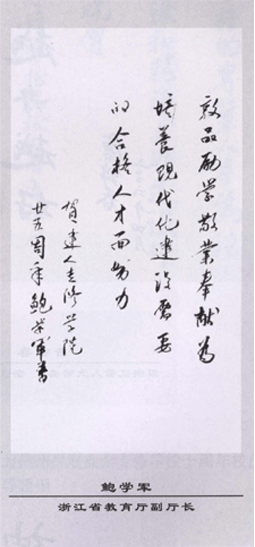 敦品励学敬业奉献为
培养现代化建设需要
的合格人才而努力
贺建人专修学院
廿五周年 鲍学军书
鲍学军
浙江省教育厅副厅长